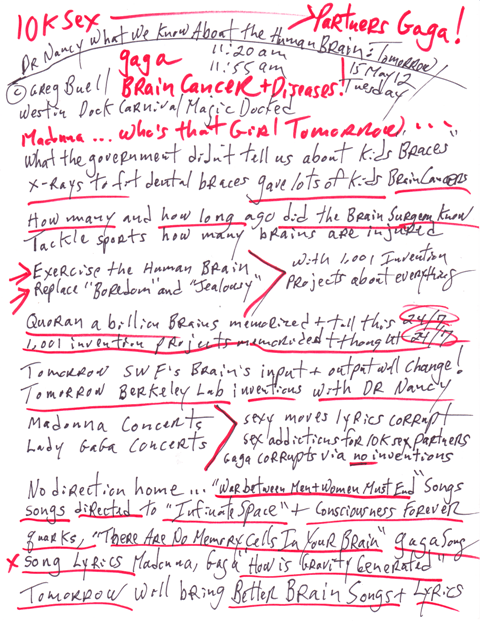 10K Sex → Partners Gaga!
Dr Nancy What We Know About the Human Brain: Tomorrow
gaga 11:20 am
11:55 am
15 May 12
Tuesday
© Greg Buell Brain Cancer + Diseases!
Westin Dock Carnival Magic Docked
Madonna... who's that Girl Tomorrow, ...
What the government didn't tell us about kids Braces"
X-Rays to fit dental braces gave lots of kids Brain Cancers
How many and how long ago did the Brain Surgeon Know
Tackle sports how many brains are injured
→ Exercise the Human Brain
→ Replace "Boredom" and "Jealousy"
with 1,001 Invention
Projects about everything
Quoran a billion Brains memorized + tell this 24/7
1,001 invention projects memorized + thong ut 24/7
Tomorrow SWF's Brain's input + output will change!
Tomorrow Berkeley Lab inventions with Dr Nancy
Madonna Concerts
Lady Gaga Concerts
sexy moves lyrics corrupt
sex addictions for 10K sex partners
gaga corrupts via no inventions
No direction home... "War between Men + Women Must End" Songs
songs directed to "Intimate Space" + Consciousness Forever
quarks, "There Are No Memory Cells In Your Brain" gaga Song
x Song Lyrics Madonna, Gaga "How is Gravity Generated"
Tomorrow will bring Better Brain Songs + Lyrics